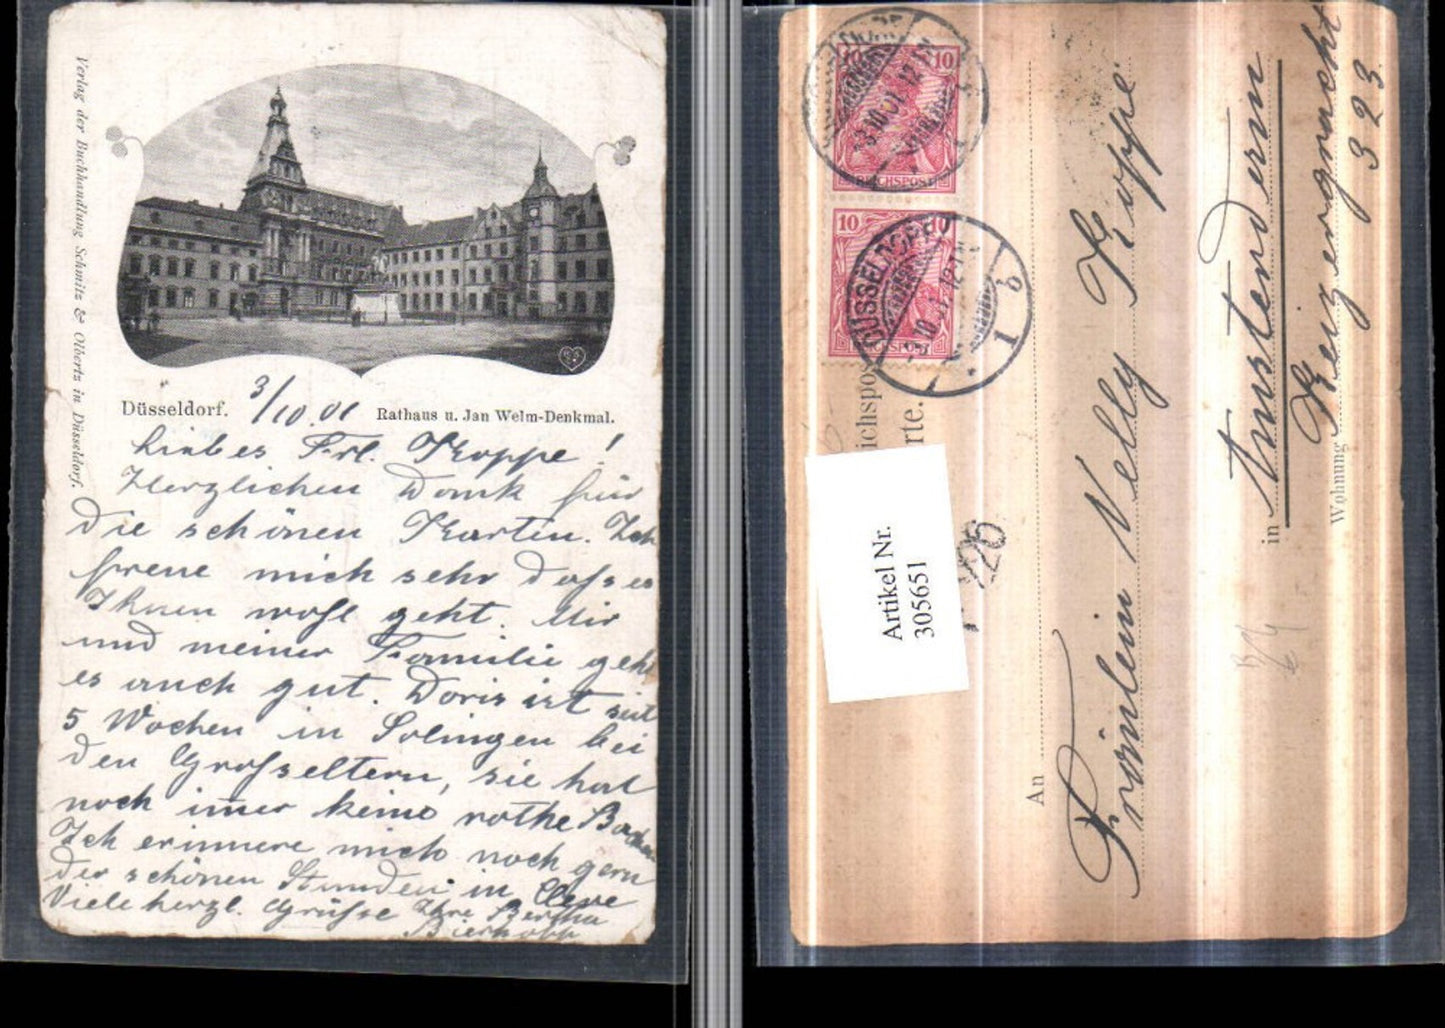 Verlag der Buchhandlung Schmitz & Olberts in Düsseldorf.
Düsseldorf. 3/10.01 Rathaus u. Jan Welm-Denkmal.
Liebes Frl. Koppe!
Herzlichen Dank für
die schönen Karten. Ich
freue mich sehr dass es
Ihnen wohl geht. Mir
und meiner Familie geht
es auch gut. Doris ist seit
5 Wochen in Solingen bei
den Grosseltern, sie hat
noch imer keine rothe Backen
Ich erinnere mich noch gern
der schönen Stunden in Cleve
Viele herzl. Grüsse Ihre Bertha
10 10
REICHSPOST
10 10
REICHSPOST
DÜSSELDORF
1
ichspos
rte.
Artikel Nr.
305651
226
An Fräulein Nelly Koppe
in Amsterdam
Wohnung Keizersgracht
323